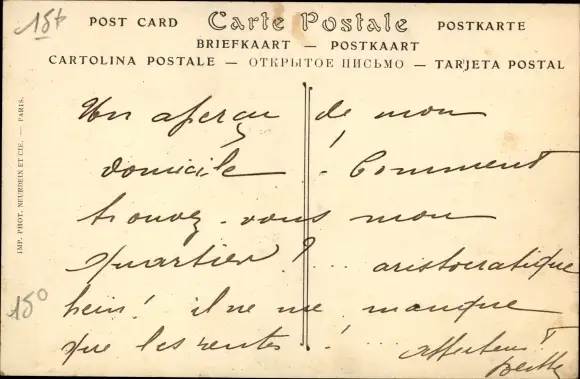 15f
POST CARD Carte Postale POSTKARTE
BRIEFKAART — POSTKAART
CARTOLINA POSTALE — ОТКРЫТОЕ ПИСЬМО — TARJETA POSTAL
IMP. PHOT. NEURDEIN ET CIE. — PARIS.
Un aperçu de mon
domicile. Comment
trouvez-vous mon
quartier? ... aristocratique
hein! il ne me manque
que les rentes! ... affectueust
150